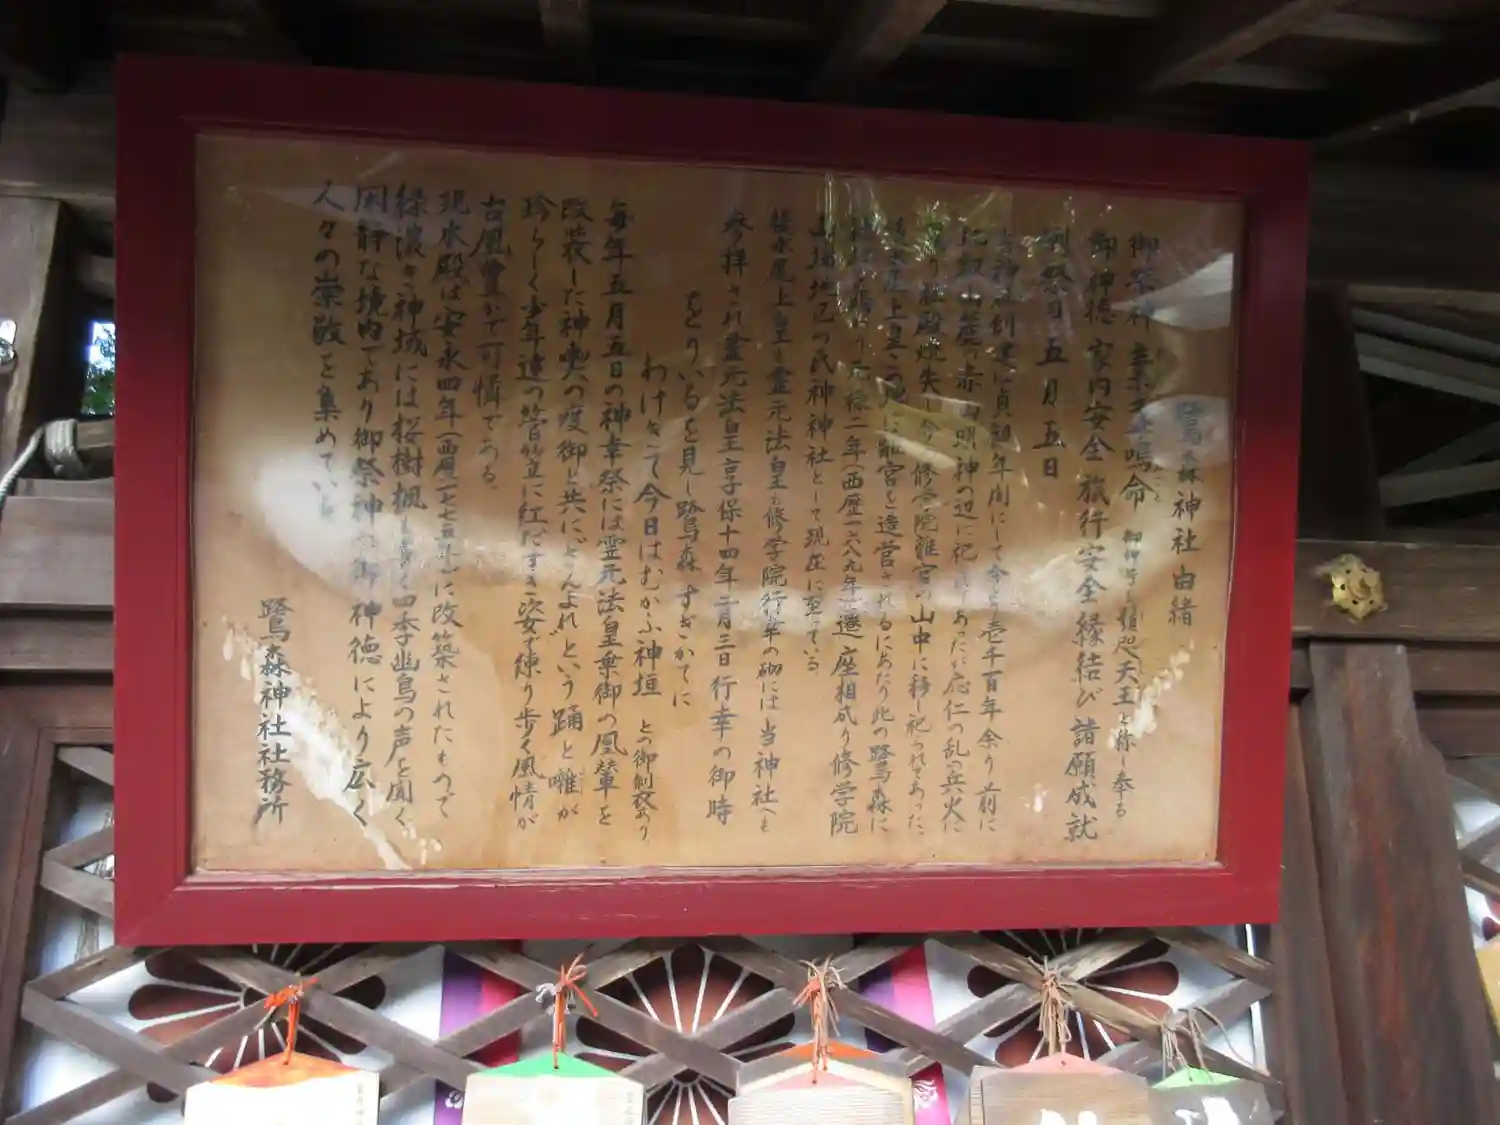 鷺森神社由緒
御祭神 素盞嗚命 天王と称し奉る
御神徳 家内安全 旅行安全 縁結び 諸願成就
例祭日 五月五日
当神社創建は貞観年間にして今より壱千百年余り前に
比叡山麓の赤山明神の辺に祀 あったが応仁の乱の兵火に
社殿焼失し今の修学院離宮の山中に移し祀られてあった。
後水尾上皇この地に離宮を造営されるにあたり此の鷺森に
二年(西歴一六八九年)遷座相成り修学院
山端地辺の氏神神社として現在に至っている
後水尾上皇も霊元法皇も修学院行幸の砌には当神社へも
参拝され霊元法皇享保十四年二月三日行幸の御時
をりいるを見し鷺森 すぎがてに
わけきて今日はむかふ神垣 との御製歌あり
毎年五月五日の神幸祭には霊元法皇乗御の鳳輦を
改装した神輿の渡御と共に"さんよれ"という踊と囃が
珍らしく少年達の菅笠に紅だすき姿で練り歩く風情が
古風豊かで可憐である。
現本殿は安永四年(西歴一七七五年)に改築されたもので
緑濃き神域には桜樹楓も多く四季幽鳥の声を聞く
閑静な境内であり御祭神の御神徳により広く
人々の崇敬を集めている
鷺森神社社務所